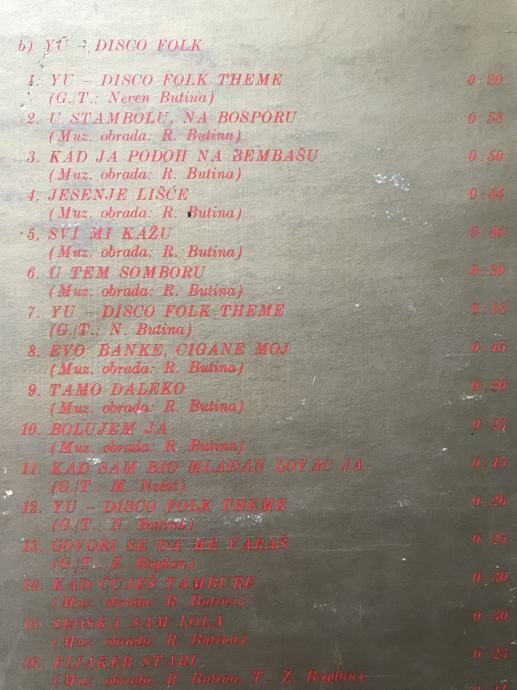 b) YU - DISCO FOLK
1. YU - DISCO FOLK THEME 0:20
(G./T.: Neven Butina)
2. U STAMBOLU, NA BOSPORU 0:58
(Muz. obrada: R. Butina)
3. KAD JA POĐOH NA BEMBAŠU 0:50
(Muz. obrada: R. Butina)
4. JESENJE LIŠĆE 0:44
(Muz. obrada: R. Butina)
5. SVI MI KAŽU
(Muz. obrada: R. Butina)
6. U TEM SOMBORU
(Muz. obrada: R. Butina)
7. YU - DISCO FOLK THEME
(G./T.: N. Butina)
8. EVO BANKE, CIGANE MOJ 0:45
(Muz. obrada: R. Butina)
9. TAMO DALEKO
(Muz. obrada: R. Butina)
10. BOLUJEM JA
(Muz. obrada: R. Butina)
11. KAD SAM BIO MLAĐAN LOVAC JA 0:45
(G./T.: M.
12. YU - DISCO FOLK THEME 0:26
(G./T.: N. Butina)
13. GOVORI SE DA ME VARAŠ 0:25
(G./T.- Z. Bogdan)
14. KAD ČUJEŠ TAMBURE 0:30
(Muz. obrada: R. Butina)
15. SEOSKA SAM LOLA 0:30
(Muz. obrada: R. Butina)
16. FIJAKER STARI 0:25
(Muz. obrada: R. Butina, T.- Z. Bogdan)